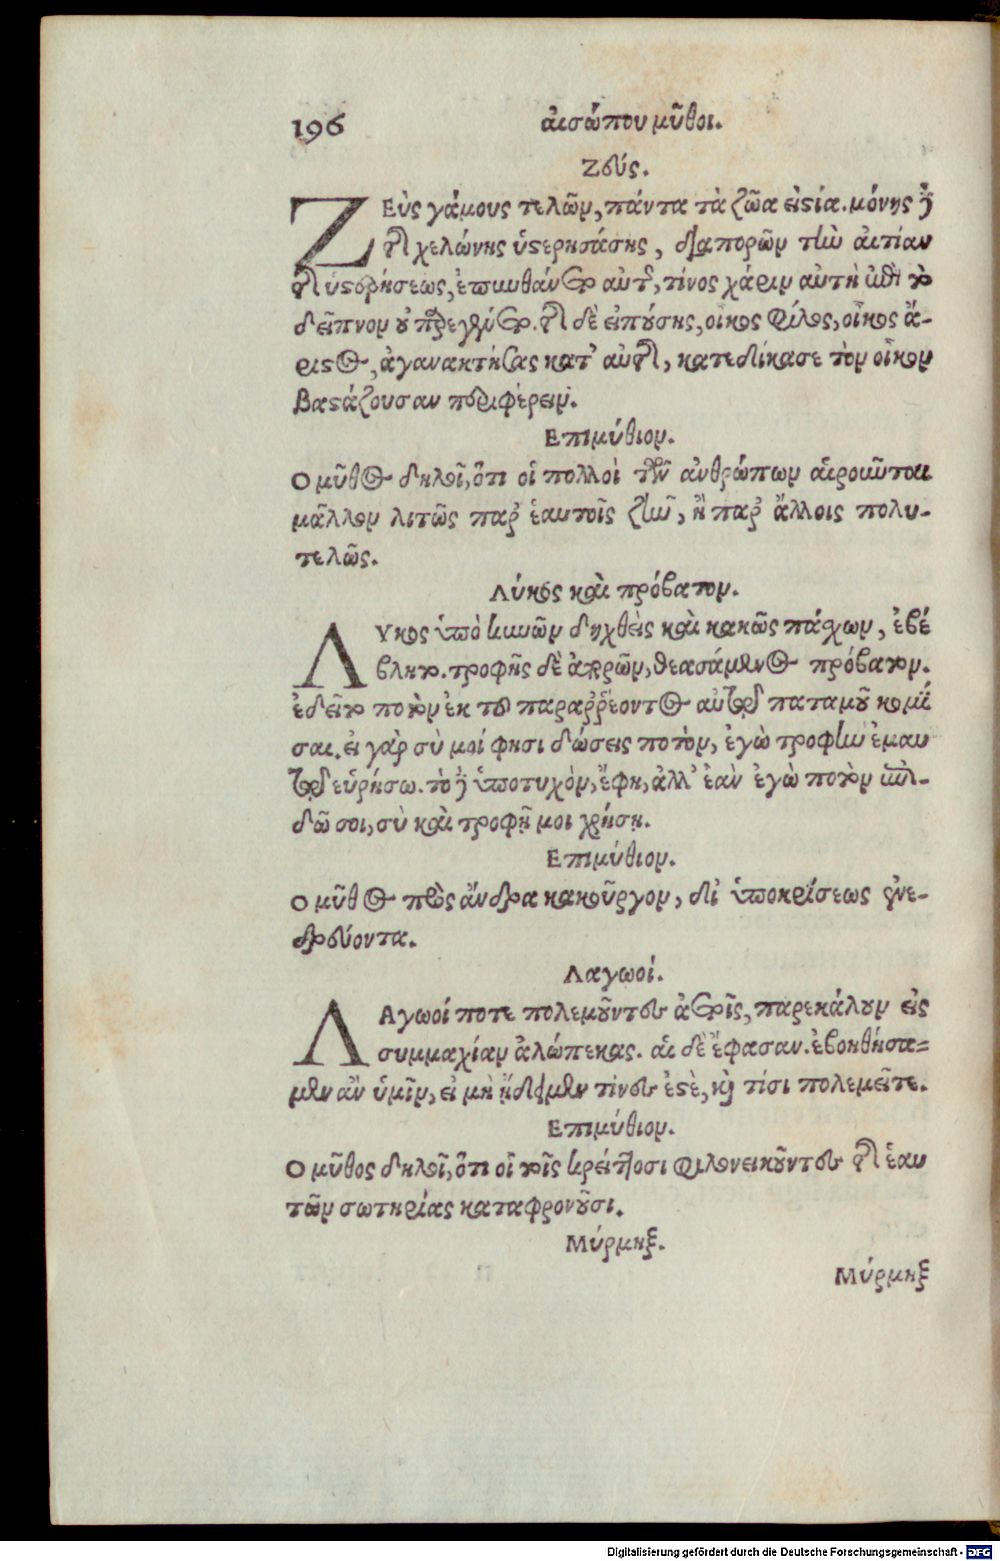 196 αἰσώπου μῦθοι.
Ζεύς.
ΖΕὺς γάμους τελῶν, πάντα τὰ ζῶα εἱστία. μόνης δὲ
τῆς χελώνης ὑστερησάσης, διαπορῶν τὴν αἰτίαν
τῆς ὑστερήσεως, ἐπυνθάνετο αὐτῆς, τίνος χάριν αὐτὴ ἐπὶ τὸ
δεῖπνον οὐ παρεγένετο. τῆς δὲ εἰπούσης, οἶκος φίλος, οἶκος ἄ-
ριστος, ἀγανακτήσας κατ' αὐτῆς, κατεδίκασε τὸν οἶκον
βαστάζουσαν περιφέρειν.
Επιμύθιον.
Ο μῦθος δηλοῖ, ὅτι οἱ πολλοὶ τῶν ἀνθρώπων αἱροῦνται
μᾶλλον λιτῶς παρ' ἑαυτοῖς ζῆν, ἢ παρ' ἄλλοις πολυ-
τελῶς.
Λύκος καὶ πρόβατον.
ΛΥκος ὑπὸ κυνῶν δηχθεὶς καὶ κακῶς πάσχων, ἐβέ
βλητο. τροφῆς δὲ ἀπορῶν, θεασάμενος πρόβατον.
ἐδεῖτο ποτὸν ἐκ τοῦ παραῤῥέοντος αὐτῷ παταμοῦ κομί
σαι. εἰ γὰρ σὺ μοί φησι δώσεις ποτὸν, ἐγὼ τροφὴν ἐμαυ
τῷ εὑρήσω. τὸ δὲ ὑποτυχὸν, ἔφη, ἀλλ' ἐὰν ἐγὼ ποτὸν ἐπι-
δῶ σοι, σὺ καὶ τροφῇ μοι χρήσῃ.
Επιμύθιον.
Ο μῦθος πρὸς ἄνδρα κακοῦργον, δι' ὑποκρίσεως ἐνε-
δρεύοντα.
Λαγωοί.
ΛΑγωοί ποτε πολεμοῦντες ἀετοῖς, παρεκάλουν εἰς
συμμαχίαν ἀλώπεκας. αἱ δὲ ἔφασαν. ἐβοηθήσα-
μεν ἂν ὑμῖν, εἰ μὴ ᾔδειμεν τίνες ἐστὲ, καὶ τίσι πολεμεῖτε.
Επιμύθιον.
Ο μῦθος δηλοῖ, ὅτι οἱ τοῖς κρείττοσι φιλονεικοῦντες τῆς ἑαυ
τῶν σωτηρίας καταφρονοῦσι.
Μύρμηξ.
Μύρμηξ
Digitalisierung gefördert durch die Deutsche Forschungsgemeinschaft - DFG